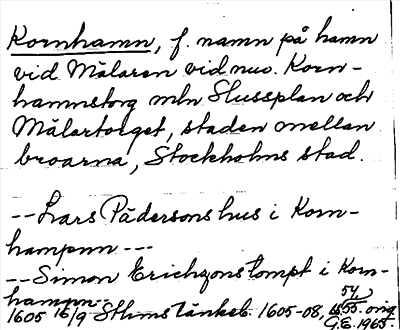 Kornhamn, f. namn på hamn
vid Mälaren vid nuv. Korn-
hamnstorg mln Slussplan och
Mälartorget, staden mellan
broarna, Stockholms stad.
--Lars Pädersons hus i Korn-
hampnn ---
--Simon Erichzons tompt i Korn-
hampn
1605 16/9 Sthms tänkeb. 1605-08, s 54, 55. orig
G.E. 1965.